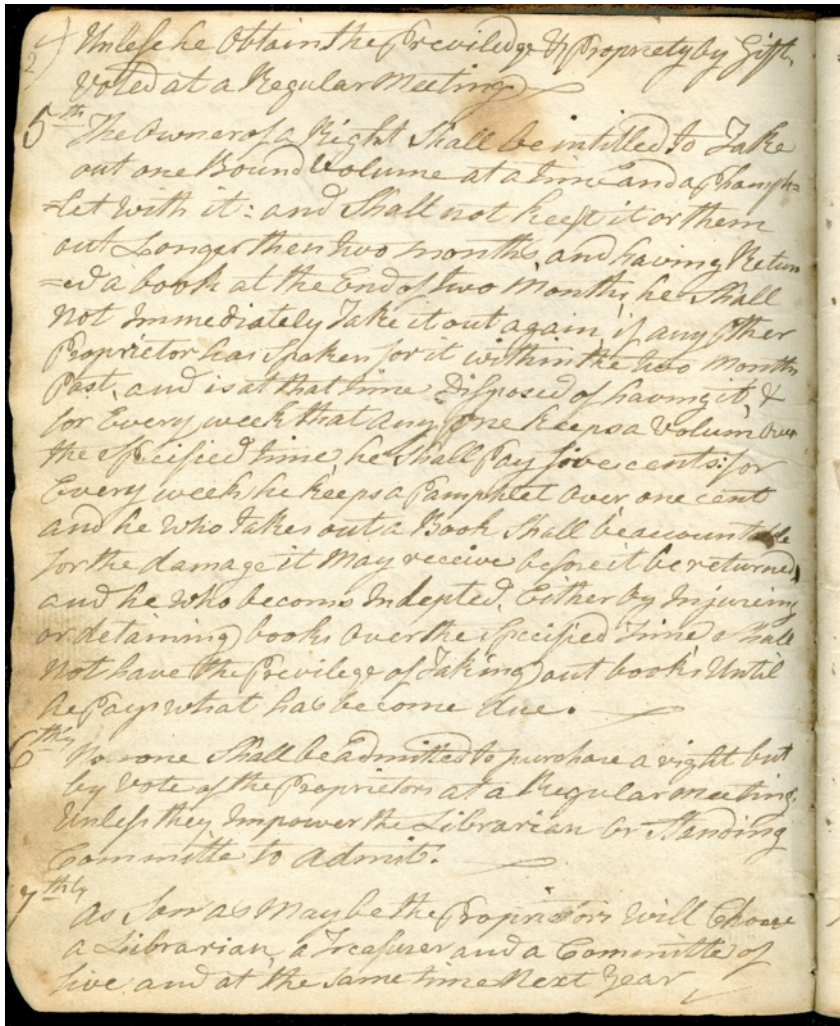 2) Unless he Obtain the Previledge & Propriety by Gift,
Voted at a Regular Meeting
5th The Owner of a Right Shall be intitled to Take
out one Bound Volume at a time and a Phamph=
=let with it: and Shall not keept it or them
out Longer then two months, and having Return
=ed a book at the End of two Months, he Shall
Not Immediately Take it out again, if any Other
Proprietor has Spoken for it within the two Months
Past, and is at that time Disposed of having it, &
for Every week that any one keeps a Volum, Over
the Specified time, he Shall Pay five cents: for
Every week he keeps a Pamphlet Over one cent
and he Who Takes out a Book Shall be accountable
for the damage it May receive before it be returned,
and he Who becoms Indepted, Either by Injureing
or detaining books Over the Specified Time Shall
Not have the Previlege of Taking out books Until
he Pays what has become due.
6thly No one Shall be Admitted to purchase a right but
by Vote of the Proprietors at a Regular meeting,
Unless they Impower the Librarian or Standing
Committe to Admit.
7thly As Soon as May be the Proprietors Will Choose
a Librarian, a Treasurer and a Committe of
five and at the Same time Next Year